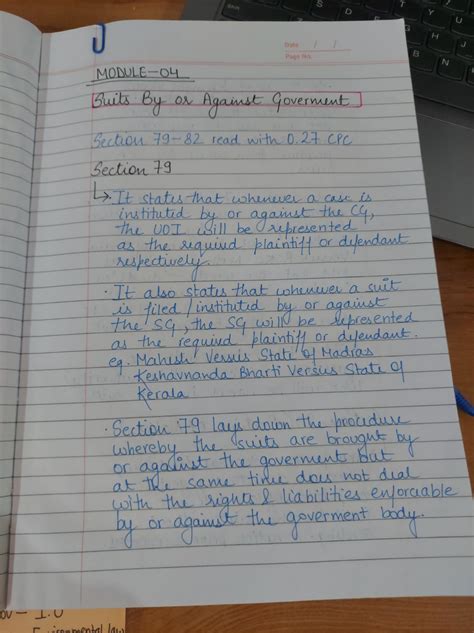 Date / /
Page No.
MODULE-04
Suits By or Against Goverment
Section 79-82 read with O.27 CPC
Section 79
↳ It states that whenever a case is
instituted by or against the CG,
the UOI will be represented
as the required plaintiff or defendant
respectively.
· It also states that whenever a suit
is filed / instituted by or against
the SG, the SG will be represented
as the required plaintiff or defendant.
eg. Mahesh Versus State of Madras
Keshavnanda Bharti Versus State of
Kerala
· Section 79 lays down the procedure
whereby the suits are brought by
or against the goverment but
at the same time does not deal
with the rights & liabilities enforceable
by or against the goverment body.